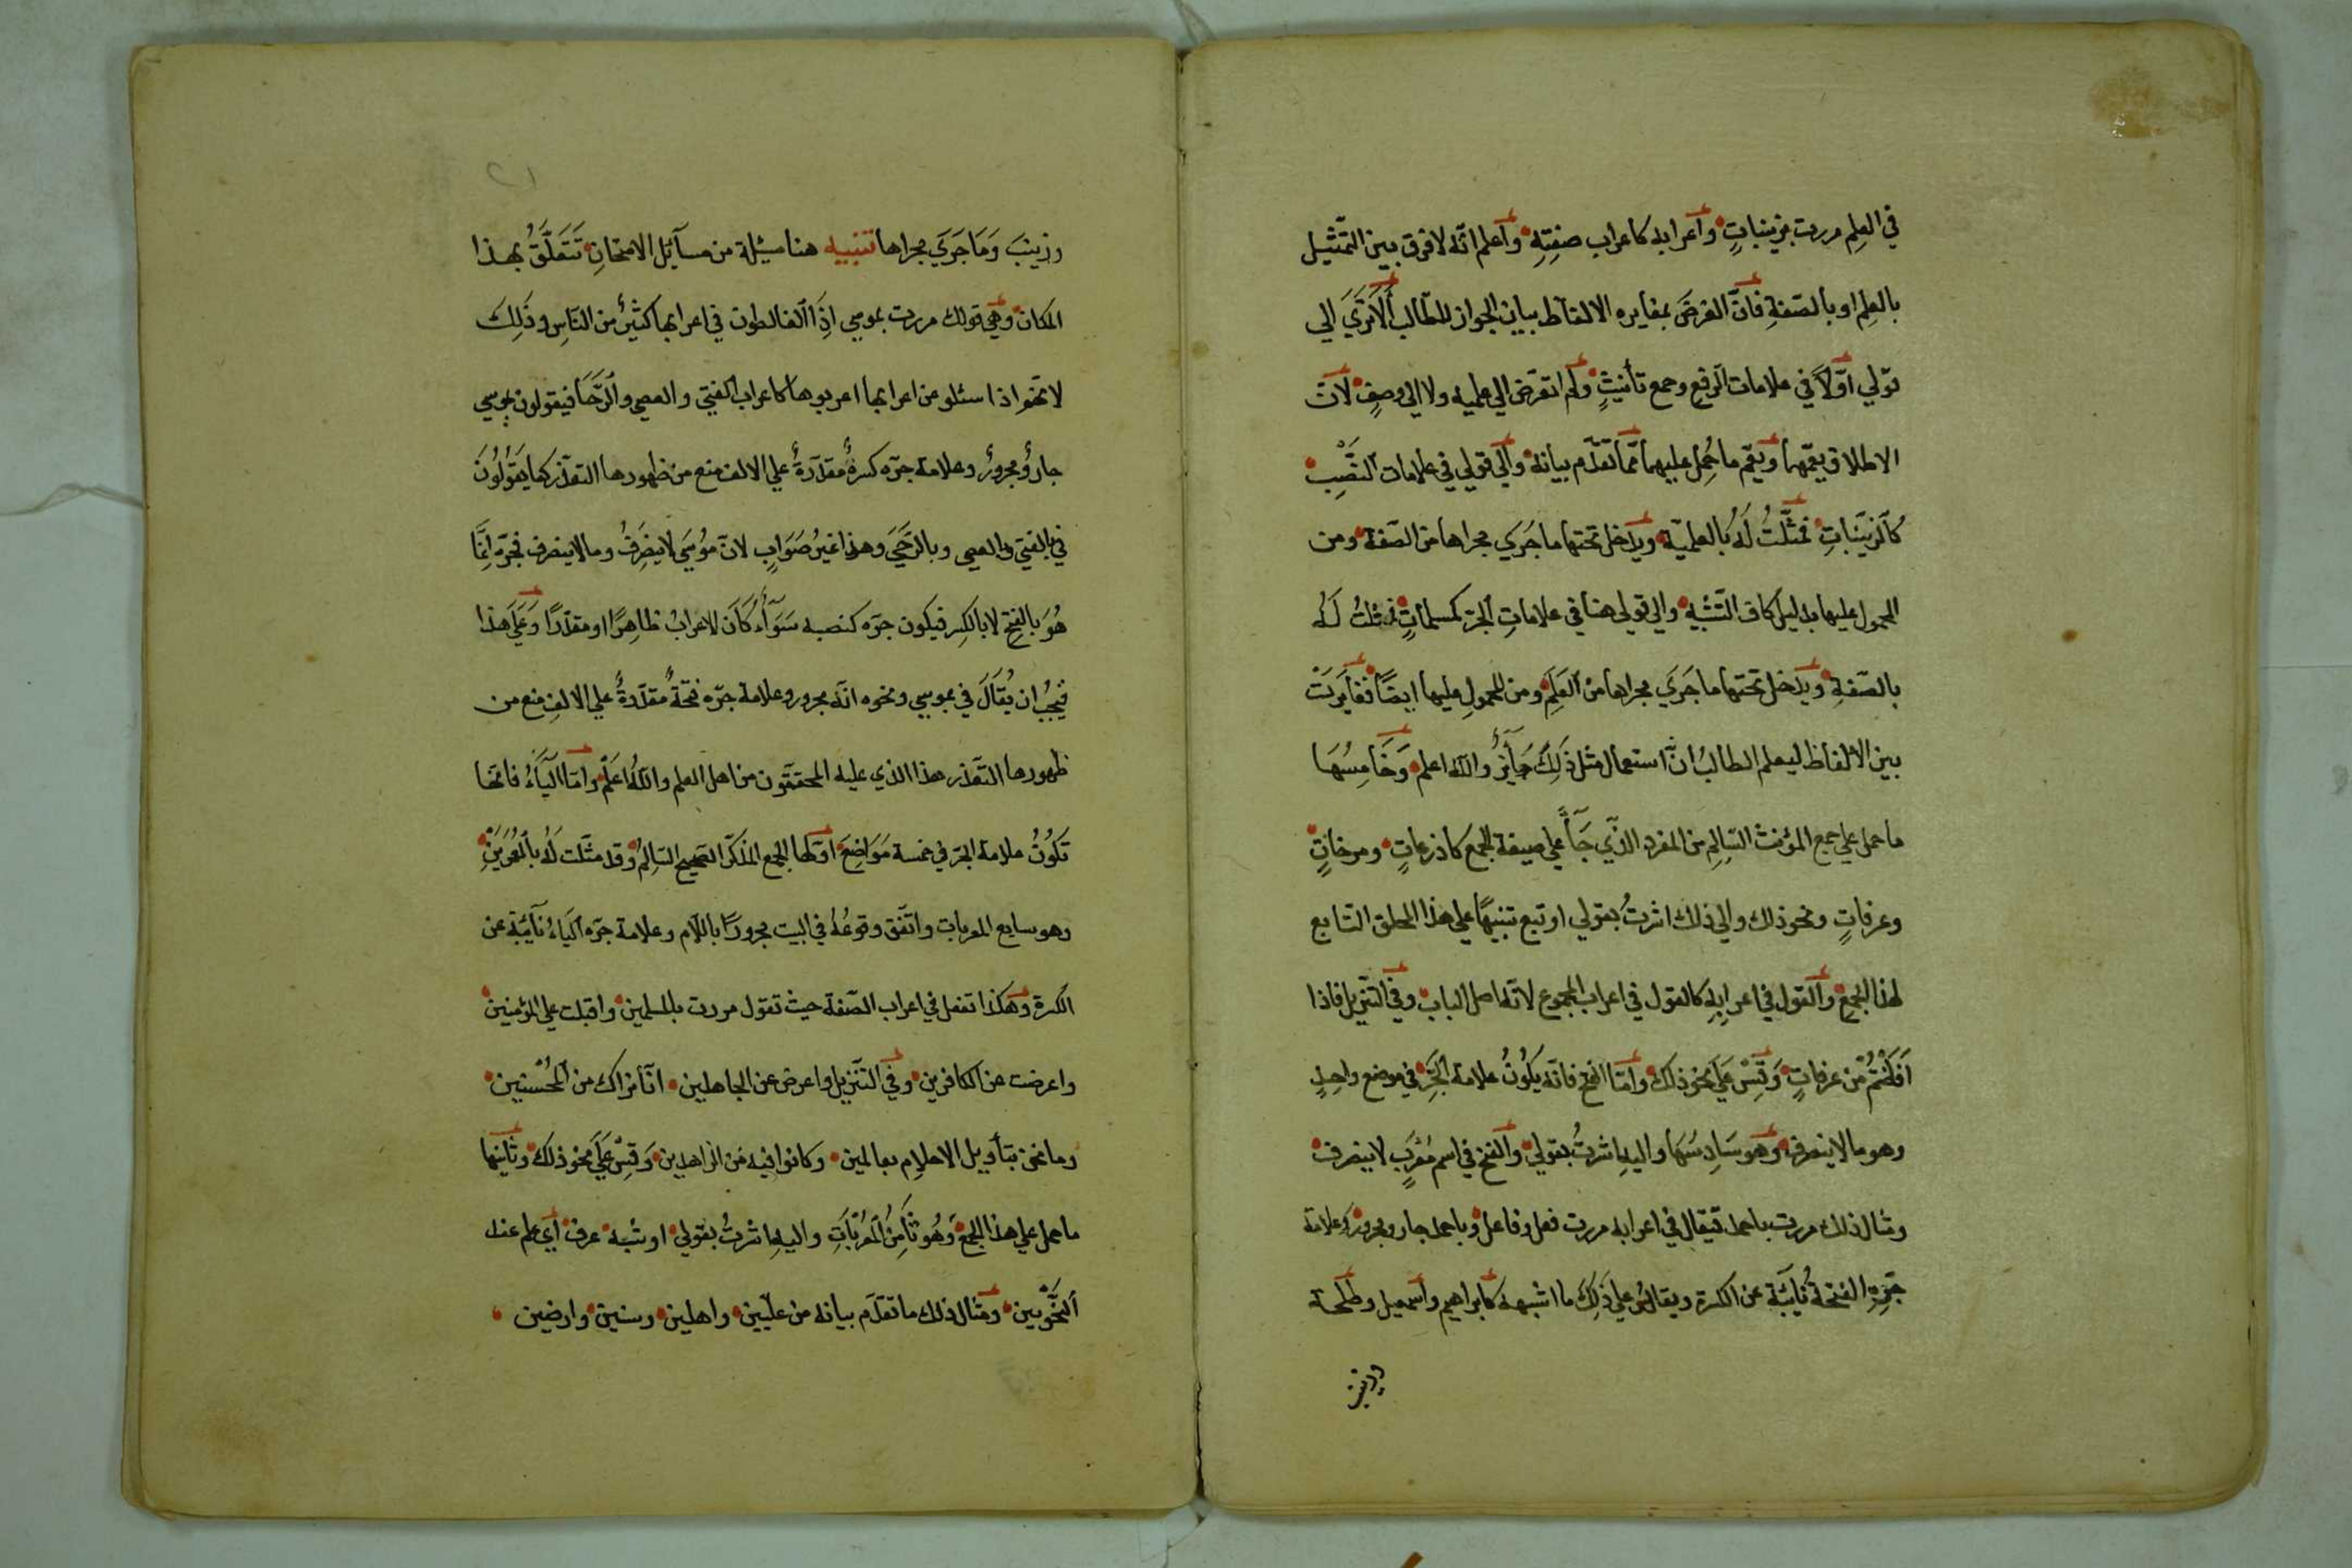 في العلم مررت بزينباتٍ واعرابه كاعراب صفتِهِ واعلم انّه لا فرق بين التمثيل
بالعلم او بالصّفةِ فانّ الغرضَ بمغايره الالفاظ بيان الجواز للطّالب ألا ترَي الي
قولي اوّلاً في علامات الرفع وجمع تأنيثٍ ولم اتعرّض الي علميه ولا الي وصفٍ لانّ
الاطلاق يعمّهما ويعُم ما حُمِل عليهما ممّا تقدّم بيانه والي قولي في علامات النَّصْبِ
كالزيَنباتِ فمثّلتُ لَهُ بالعلميّة ويدخل تحتها ما جَرَي مجراها من الصّفة ومن
المحمول عليها بدليل كاف التّشبه والي قولي هنا في علاماتِ الجرّ كمسلماتٍ فمثلتُ لَهُ
بالصّفةِ ويدخل تحتها ما جَرَي مجراها من العَلَمِ ومن المحمولِ عليها ايضًا فغايَرتُ
بين الالفاظ ليعلم الطالبُ انّ استعمال مثل ذَلِكَ جَآئِزٌ والله اعلم وَخَامِسُهَا
ما حمل علي جمع المؤنث السّالِمِ من المفرد الذّي جَآءَ علي صيغة الجمع كاذرعاتٍ ومرخاتٍ
وعرفاتٍ ونحو ذلك والي ذلك اشرتُ بقولي او تبع تنبيهًا علي هذا الملحق التابع
لهذا الجمعِ والقول في اعرابِهِ كالقول في اعراب المجموع لانّه اصل الباب وفي التنزيل فاذا
اَفَضْتُمْ مّن عرفاتٍ وَقِسْ عَلَي نحو ذلك وامّا الفتح فانّه يكُونُ علامة الجَرِّ في موضع واحِدٍ
وهو ما لا ينصرف وَهو سَادِسُهَا واليهِ اشرتُ بقولي والفتح في اسم مُعْرَبٍ لا ينصرف
ومثال ذلك مررت باحمد فيقال في اعرابه مررت فعل وفاعل وباحمد جار ومجرور وعلامة
جرّهِ الفتحةُ نَآئبَة عن الكسرة ويقاسُ علي ذَلِكَ ما اشبهه كابراهيم واسمعيل وطلحة
وزينب
٢١
وزينبَ وَمَا جَرَي مجراها تنبيه هنا مسئلة من مسآئل الامتحانِ تَتَعَلَّقُ بهذا
المكان وهي قولك مررت بموسي اِذِ الغالطون في اعرابها كثيرٌ من النّاسِ وذَلِكَ
لانّهم اذا سئلو عن اعرابها اعربوها كاعراب الفتي والعصي والرَّحَا فيقولون بموسي
جارٌ ومجرورٌ وعلامة جرّه كسرةٌ مقدّرةٌ علي الالف منع من ظهورها التعذّر كما يَقُولُونَ
في بالفتي وبالعصي وبالرَّحَيَ وهذا غيرُ صَوَابٍ لانّ مُوسَي لا ينصَرِفُ وما لا ينصرف فجرّه اِنَّمَا
هُوَ بالفتحِ لا بالكسرِ فيكون جرّه كنصبه سَوَآءً كَانَ الاعرابُ ظاهِرًا او مقدّرًا وَعَلَي هذا
فيَجِبُ ان يُقَالَ في بموسي ونحوه انّه مجرور وعلامة جرّه فتحةٌ مقدّرةٌ علي الالفِ منع من
ظهورها التّعذر هذا الذي عليه المحققون من اهل العلم واللهُ اعَلَم وامّا اليَآءُ فانّها
تَكُونُ علامة الجرّ في خمسة مَوَاضِعَ اوّلها الجمع المذكّر الصّحيح السّالِمُ وقد مثّلت لَهُ بالمُعْرَبَيْنِ
وهو سابع المعربات واتّفق وقوعُهُ في البيت مجرورًا باللّام وعلامة جرّه اليَاءُ نَآئبَة عن
الكسرة وهَكذا تفعل في اعراب الصّفة حيث تقول مررت بالمسلمين واقبلت علي المؤمنين
واعرضت عن الكافرين وفي التّنزيل واعرض عن الجاهلين انّا نراك من المُحْسنِين
وما نحن بتأويل الاحلامِ بعالمين وكانوا فيه من الزّاهدين وَقِسْ عَلَي نحو ذلك وثانيها
ما حمل علي هذا الجمعِ وَهُوَ ثَامِنُ المَعْرُبَاتِ واليهِ اشرتُ بقولي او شبه عرف اي علم عند
النَّحْوِيين ومثال ذلك ما تقدّم بيانه من علّيين واهلين وسنين وارضين